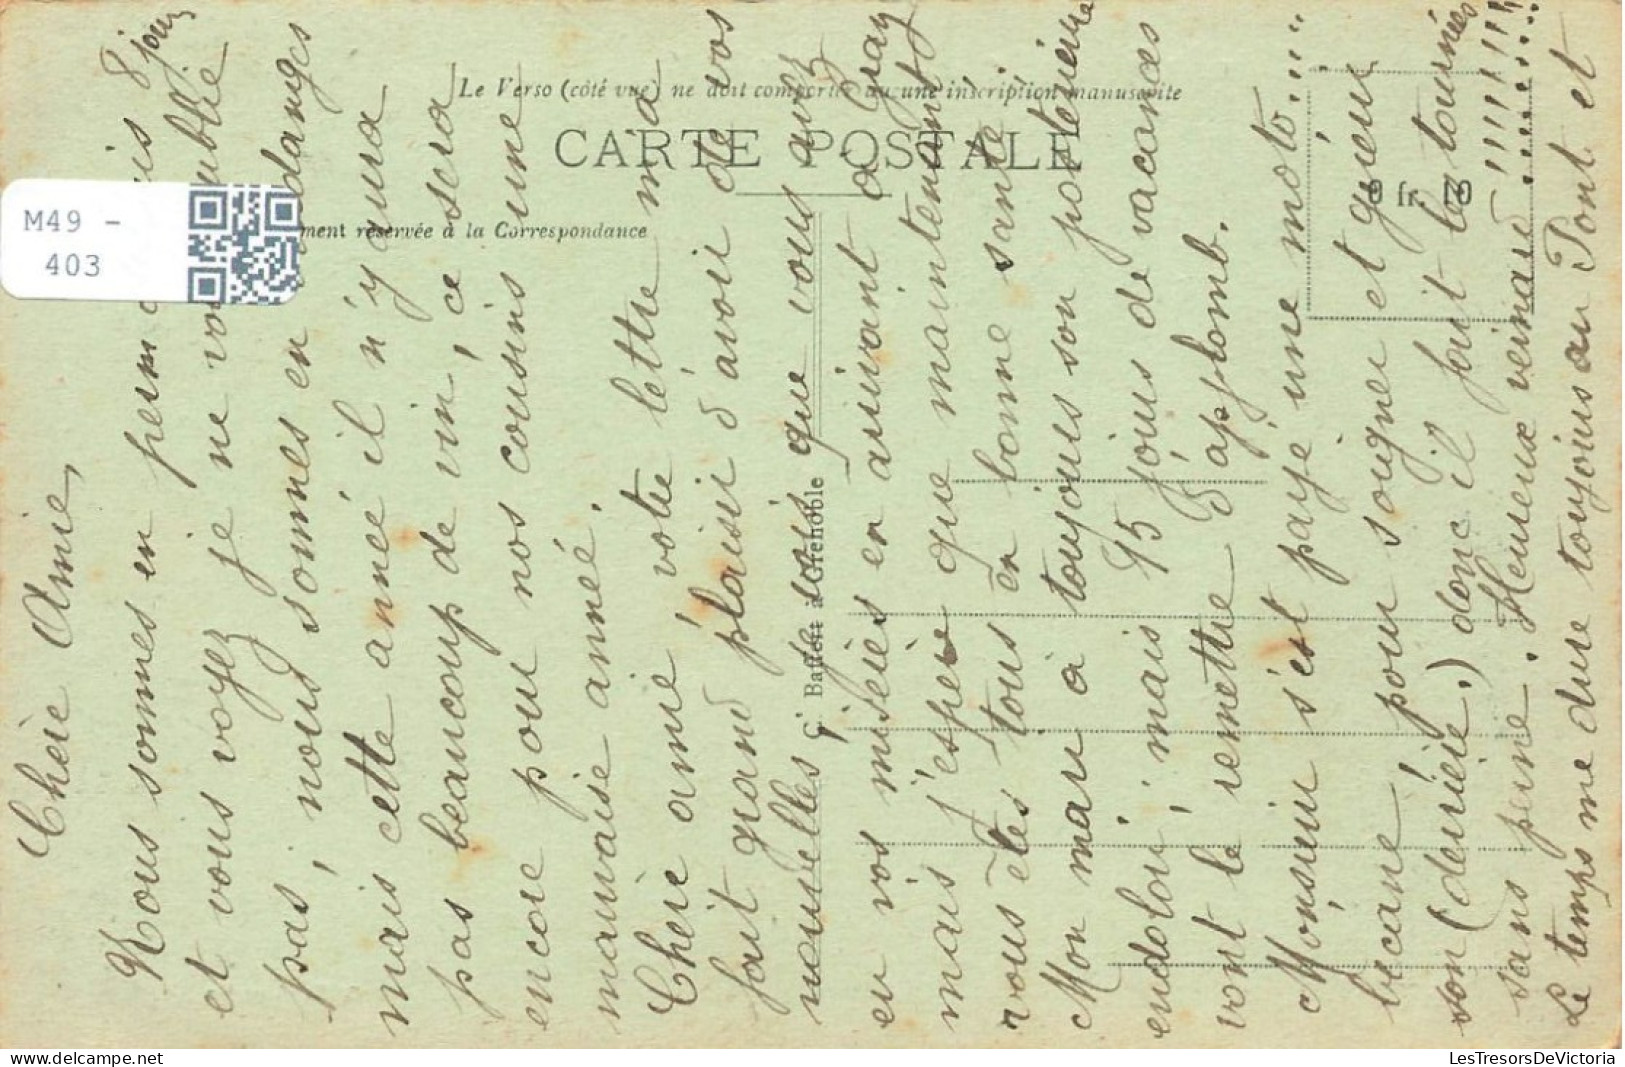 Le Verso (côté vue) ne doit comporter aucune inscription manuscrite
CARTE POSTALE
ment réservée à la Correspondance
0 fr. 10
C. Baffert à Grenoble
M49 -
403
Chère Amie,
Nous sommes en depuis 8 jours
et vous voyez je ne vous oublie
pas, nous sommes en vendanges
mais cette année il n'y aura
pas beaucoup de vin, ce sera
encore pour nos cousins une
mauvaise année.
Chère amie votre lettre m'a
fait grand plaisir d'avoir de vos
nouvelles, je sais que vous avez
eu vos misères en arrivant à Gray
mais j'espère que maintenant
vous êtes tous en bonne santé
Mon mari à toujours son postérieure
endolori, mais 15 jours de vacances
vont le remettre d'applomb.
Monsieur s'est payé une moto....
becane pour soigner et guérir
son (derrière.) donc il fait la tournées
sans peine. Heureux veinard !!!!!!!!
Le temps me dure toujours au Pont et
LesTresorsDeVictoria
delcampe.net